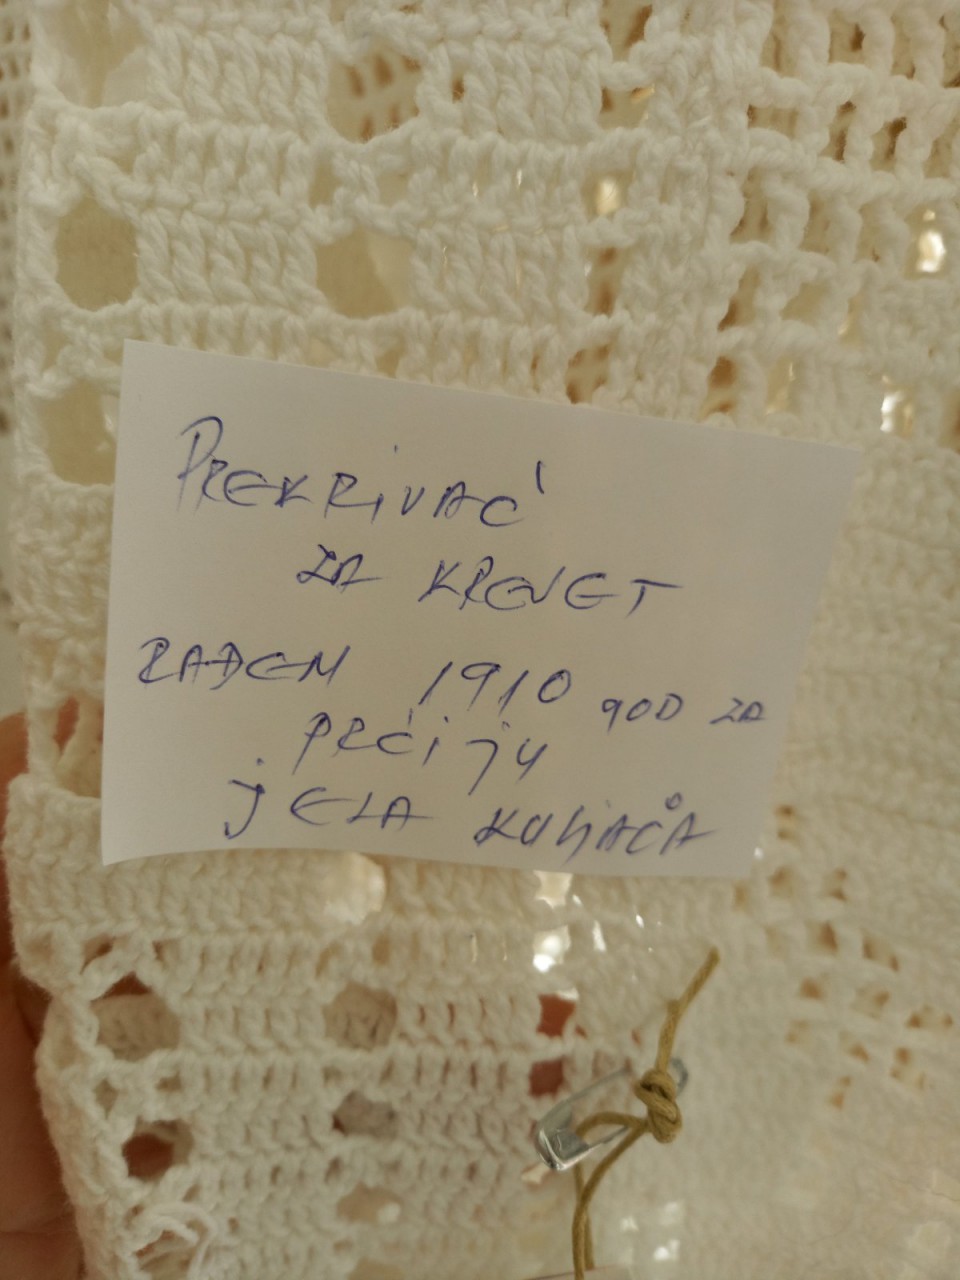 PREKRIVAČ
ZA KREVET
RAĐEN 1910 GOD ZA
PRĆIJU
JELA KULJAČA